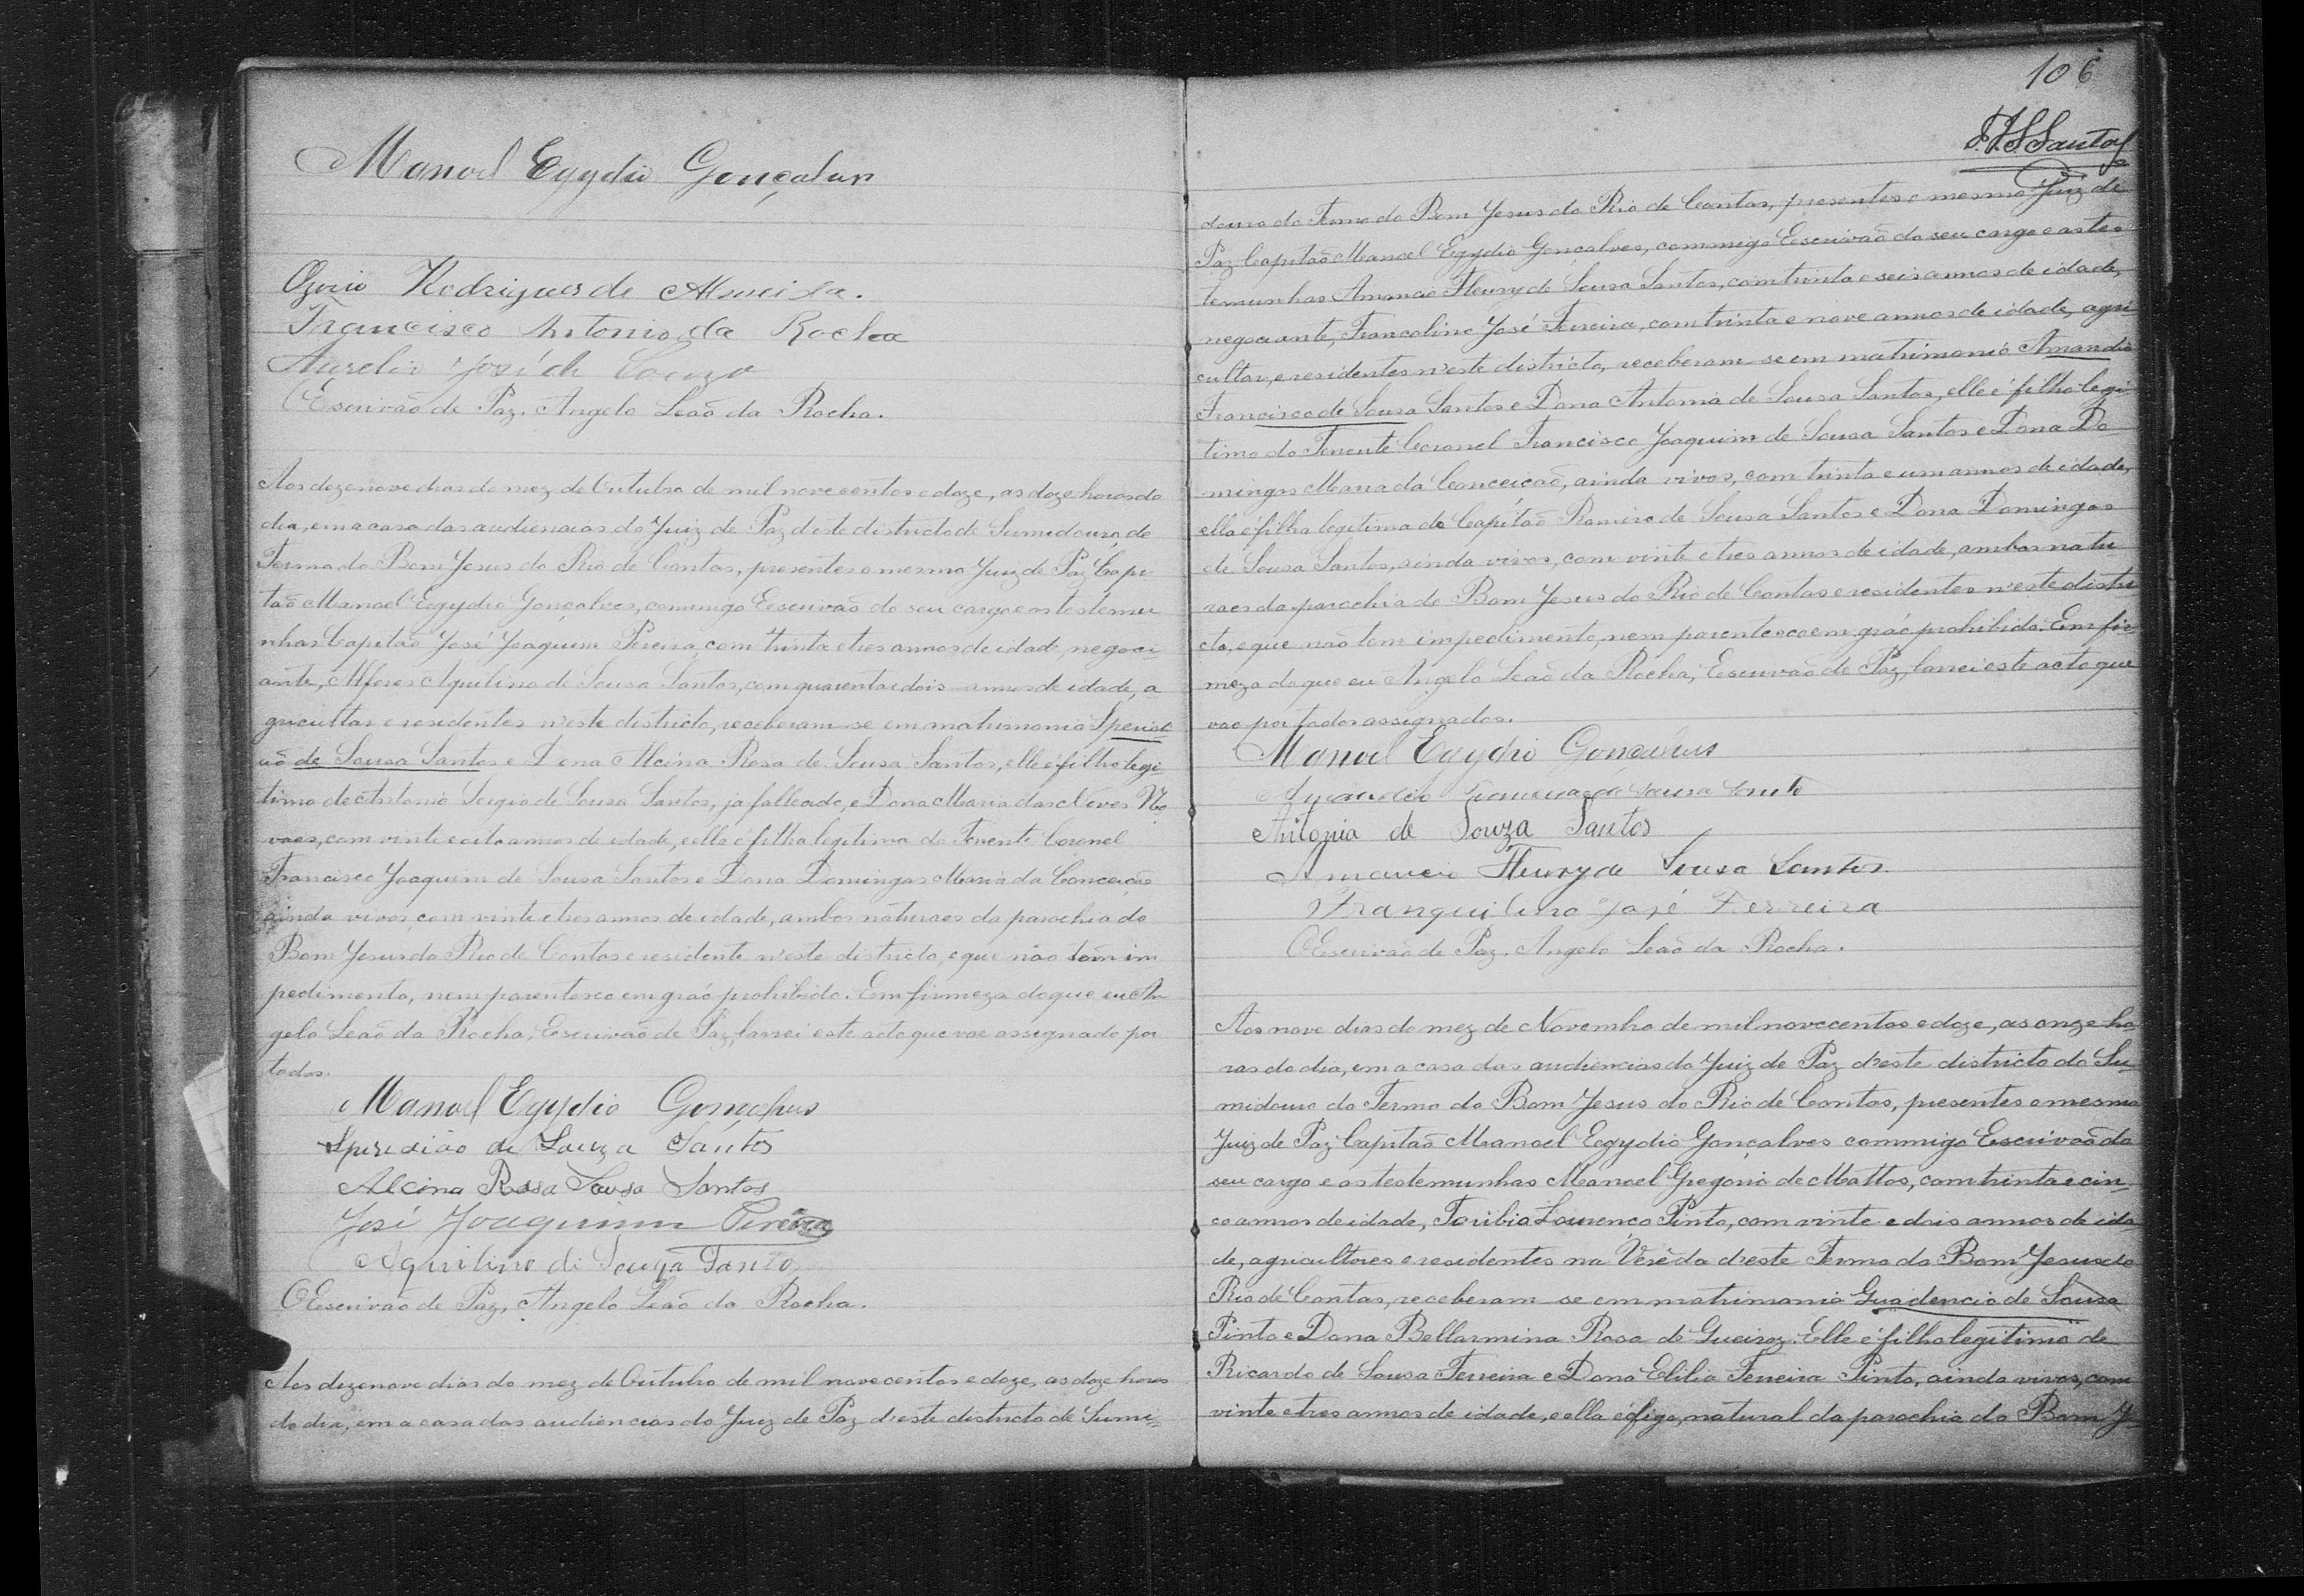 Manoel Egydio Gonçalves
Ozorio Rodrigues de Almeida.
Francisco Antonio da Rocha
Aurelio José de Souza
O Escrivão de Paz. Angelo Leaõ da Rocha.
Aos dezenove dias do mez de Outubro de mil novecentos e doze, as doze horas do
dia, em a casa das audiencias do Juiz de Paz d'este districto de Sumidouro, do
Termo do Bom Jesus do Rio de Contas, presentes o mesmo Juiz de Paz Capi-
taõ Manoel Egydio Gonçalves, commigo Escrivaõ do seu cargo e as testemu-
nhas Capitaõ José Joaquim Pereira, com trinta e tres annos de idade, negoci-
ante, Alferes Aquilino de Sousa Santos, com quarenta e dois annos de idade, a-
gricultor e residentes n'este districto, receberam-se em matrimonio Speridi-
aõ de Sousa Santos e Dona Alcina Rosa de Sousa Santos, elle é filho legi-
timo de Antonio Sergio de Sousa Santos, ja fallecido, e Dona Maria das Neves No-
vaes, com vinte e oito annos de idade, e ella é filha legitima do Tenente Coronel
Francisco Joaquim de Sousa Santos e Dona Domingas Maria da Conceiçaõ
ainda vivos, com vinte e tres annos de idade, ambos naturaes da parochia do
Bom Jesus do Rio de Contas e residente n'este districto, e que não tem im-
pedimento, nem parentesco em gráo prohibido. Em firmeza do que eu An-
gelo Leaõ da Rocha, Escrivaõ de Paz, lavrei este acto que vae assignado por
todos.
Manoel Egydio Gonçalves
Speridião de Souza Santos
Alcina Rosa Sousa Santos
José Joaquim Pereira
Aquilino di Souza Santo
O Escrivaõ de Paz, Angelo Leaõ da Rocha.
Aos dezenove dias do mez de Outubro de mil novecentos e doze, as doze horas
do dia, em a casa das audiencias do Juiz de Paz d'este districto de Sumi-
106
Santos
douro do Termo do Bom Jesus do Rio de Contas, presentes o mesmo Juiz de
Paz Capitaõ Manoel Egydio Gonçalves, commigo Escrivaõ do seu cargo e as tes-
temunhas Amancio Fleury de Sousa Santos, com trinta e seis annos de idade,
negociante, Francolino José Ferreira, com trinta e nove annos de idade, agri-
cultor, e residentes n'este districto, receberam-se em matrimonio Amandio
Francisco de Sousa Santos e Dona Antonia de Sousa Santos, elle é filho legi-
timo do Tenente Coronel Francisco Joaquim de Sousa Santos e Dona Do-
mingas Maria da Conceiçaõ, ainda vivos, com trinta e um annos de idade,
ella é filha legitima do Capitaõ Ramiro de Sousa Santos e Dona Domingas
de Sousa Santos, ainda vivos, com vinte e tres annos de idade, ambos natu-
raes da parochia de Bom Jesus do Rio de Contas e residentes n'este distri-
cto, e que não tem impedimento, nem parentesco em gráo prohibido. Em fir-
meza do que eu Angelo Leaõ da Rocha, Escrivaõ de Paz, lavrei este acto que
vae por todos assignados.
Manoel Egydio Gonçalves
Amandio Francisco de Sousa Santo
Antonia de Souza Santos
Amancio Fleury de Sousa Santos.
Franquilino José Ferreira
O Escrivaõ de Paz. Angelo Leaõ da Rocha.
Aos nove dias do mez de Novembro de mil novecentos e doze, as onze ho-
ras do dia, em a casa das audiencias do Juiz de Paz d'este districto do Su-
midouro do Termo do Bom Jesus do Rio de Contas, presentes o mesmo
Juiz de Paz Capitaõ Manoel Egydio Gonçalves commigo Escrivaõ do
seu cargo e as testemunhas Manoel Gregorio de Mattos, com trinta e cin-
co annos de idade, Toribio Lourenço Pinto, com vinte e dois annos de ida-
de, agricultores e residentes na Verêda d'este Termo do Bom Jesus do
Rio de Contas, receberam-se em matrimonio Guadencio de Sousa
Pinto e Dona Bellarmina Rosa de Queiroz. Elle é filho legitimo de
Ricardo de Sousa Ferreira e Dona Elilia Ferreira Pinto, ainda vivos, com
vinte e tres annos de idade, e ella é figa, natural da parochia do Bom J-